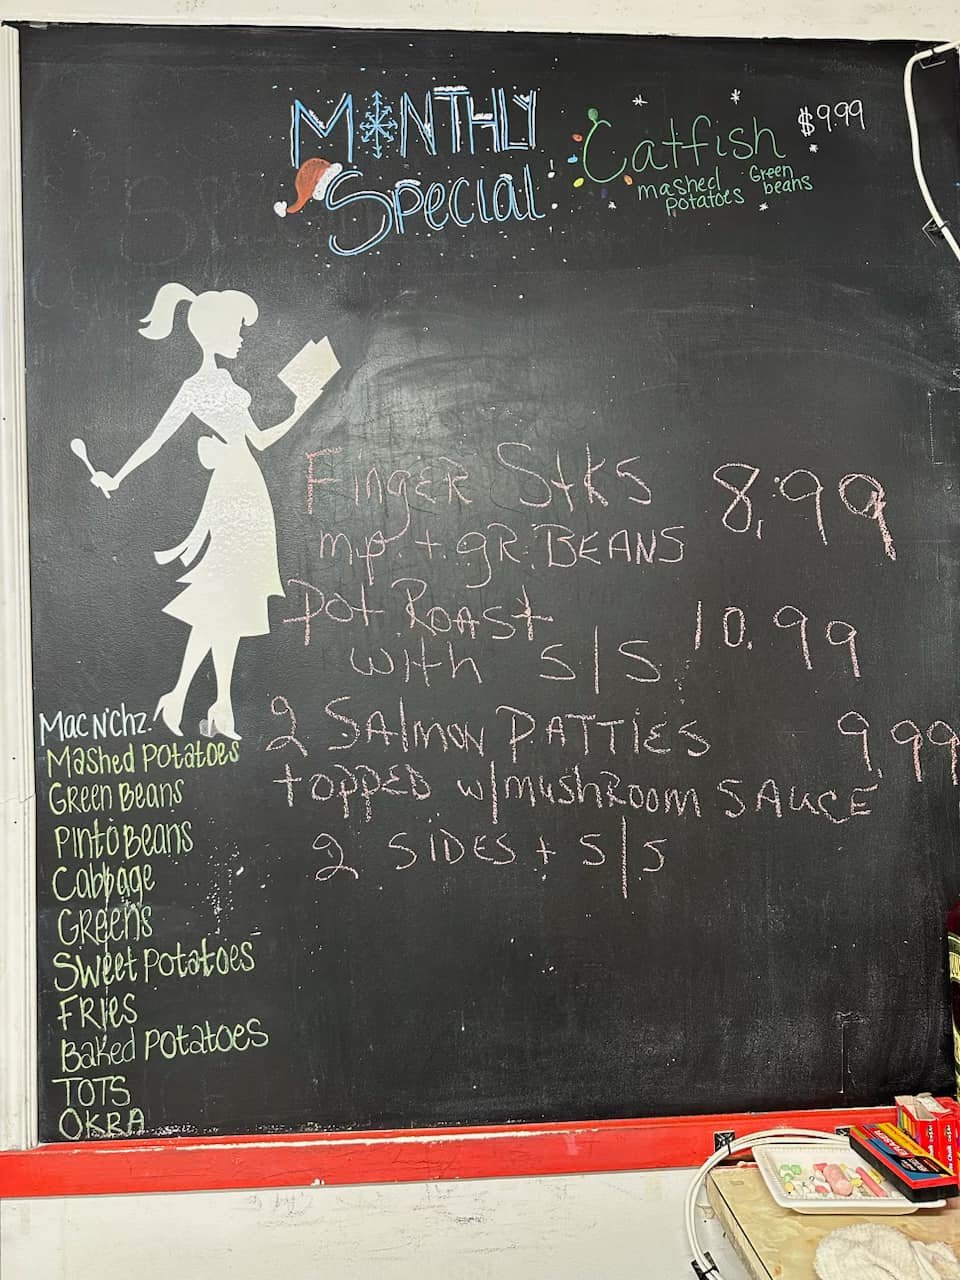 MONTHLY
Special
Catfish $9.99
mashed potatoes
Green beans
Finger Stks 8.99
mp. + gR. BEANS
Pot Roast 10.99
with s/s
2 Salmon PATTIES 9.99
topped w/mushroom SAUCE
2 SIDES + S/S
Mac N'Chz.
Mashed Potatoes
Green Beans
Pinto Beans
Cabbage
Greens
Sweet Potatoes
Fries
Baked Potatoes
TOTS
OKRA
ERASER